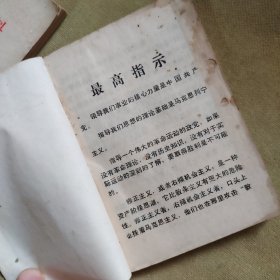 最高指示
指导我们事业的核心力量是中国共产
党。
指导我们思想的理论基础是马克思列宁
主义。
指导一个伟大的革命运动的政党，如果
没有革命理论，没有历史知识，没有对于实
际运动的深刻的了解，要取得胜利是不可能
的。
修正主义，或者右倾机会主义，是一种
资产阶级思潮，它比教条主义有更大的危险
性。修正主义者，右倾机会主义者，口头上
也挂着马克思主义，他们也在那里攻击“教